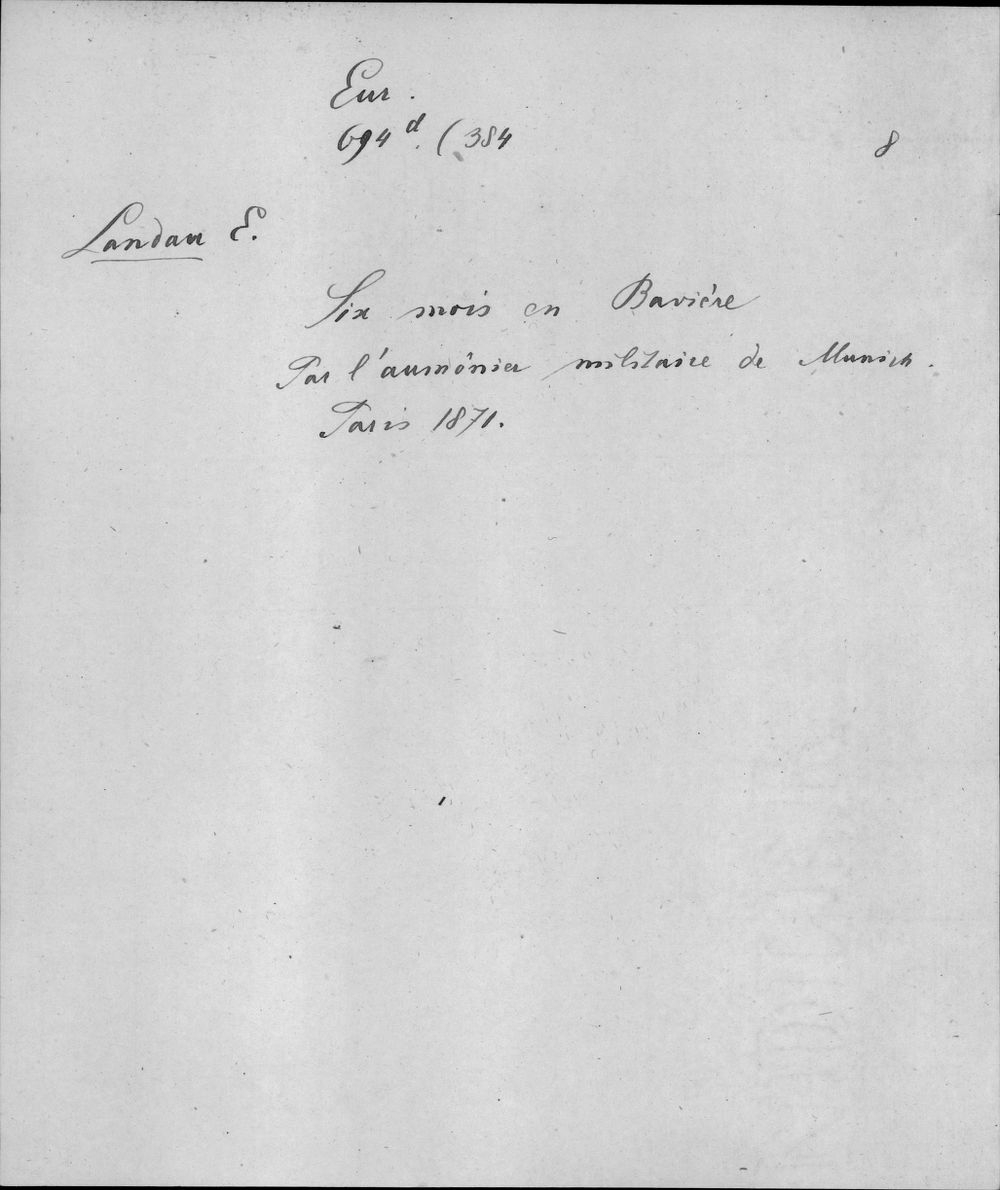 Eur.
694 d. (384
8
Landau E.
Six mois en Bavière
Par l'aumônier militaire de Munich.
Paris 1871.